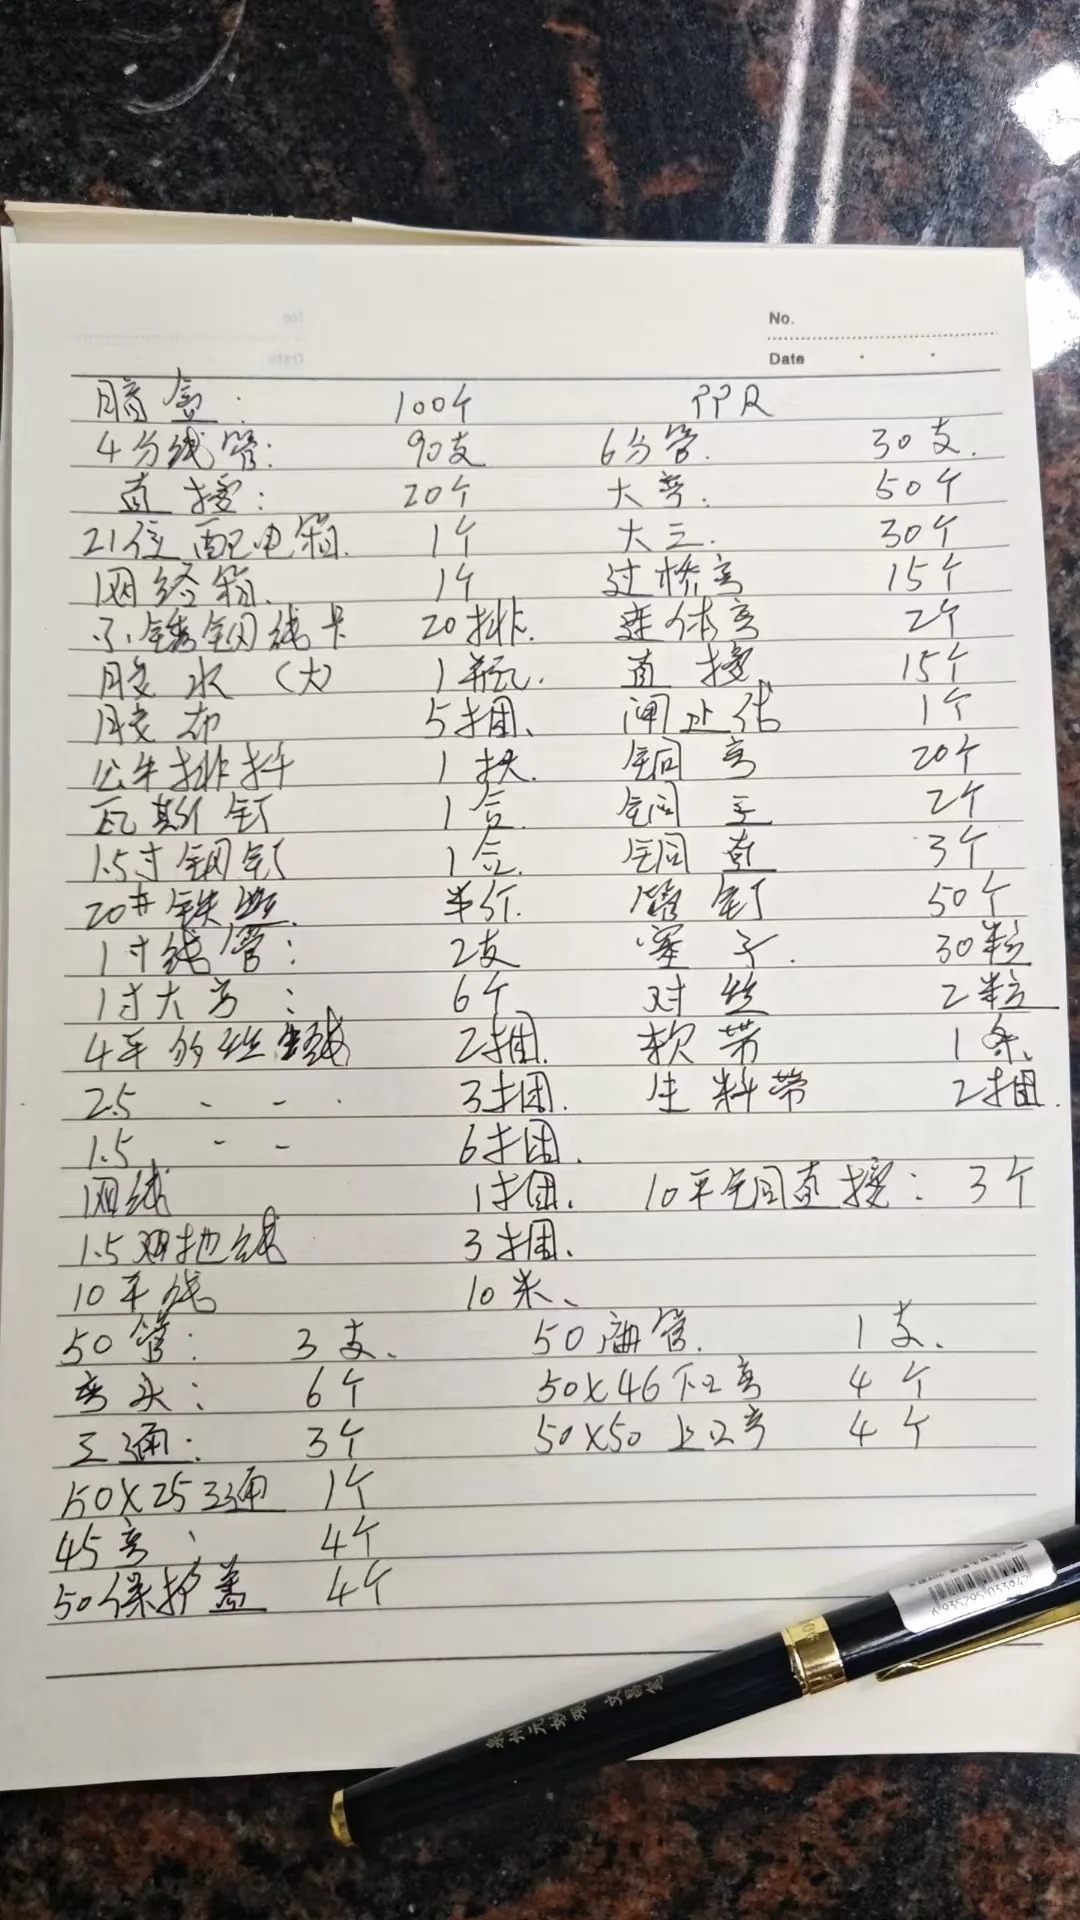 No.
Date
暗盒: 100个 PPR
4分线管: 90支 6分管. 30支.
直接: 20个 大弯. 50个
21位配电箱. 1个 大三. 30个
网络箱. 1个 过桥弯 15个
不锈钢线卡 20排. 连体弯 2个
胶水(大) 1瓶. 直接 15个
胶布 5捆、 闸止伐 1个
公牛排扦 1扶. 铜弯 20个
瓦斯钉 1合. 铜三 2个
1.5寸钢钉 1合. 铜直 3个
20#铁丝 半介. 管钉 50个
1寸线管: 2支 塞子. 30粒
1寸大弯: 6个 对丝 2粒
4平多丝线 2捆. 软带 1条、
2.5 - - . 3捆. 生料带 2捆.
1.5 - - 6捆.
网线 1捆. 10平铜直接: 3个
1.5双地线 3捆、
10平线 10米、
50管: 3支、 50扁管. 1支、
弯头: 6个 50X46下口弯 4个
三通: 3个 50X50上口弯 4个
50X25三通 1个
45弯、 4个
50保护盖 4个
泉州元妙观 文昌优